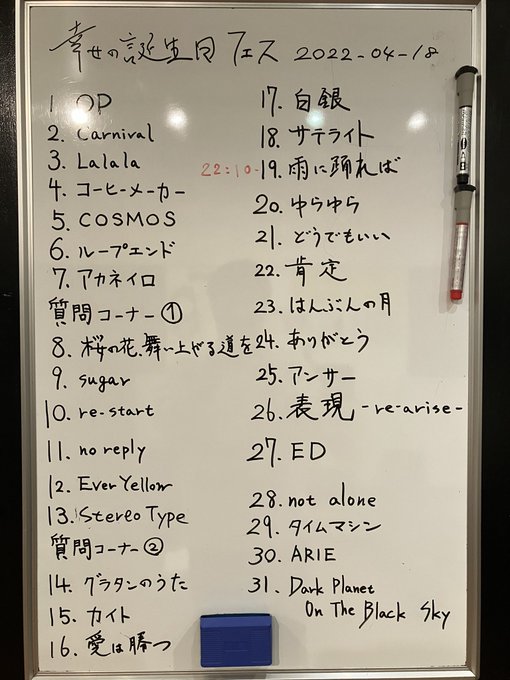 幸せの誕生日フェス 2022-04-18
1. OP
2. Carnival
3. Lalala
4. コーヒーメーカー
5. COSMOS
6. ループエンド
7. アカネイロ
質問コーナー①
8. 桜の花、舞い上がる道を
9. sugar
10. re-start
11. no reply
12. Ever Yellow
13. Stereo Type
質問コーナー②
14. グラタンのうた
15. カイト
16. 愛は勝つ
17. 白銀
18. サテライト
22:10-19. 雨に踊れば
20. ゆらゆら
21. どうでもいい
22. 肯定
23. はんぶんの月
24. ありがとう
25. アンサー
26. 表現-re-arise-
27. ED
28. not alone
29. タイムマシン
30. ARIE
31. Dark Planet
On The Black Sky